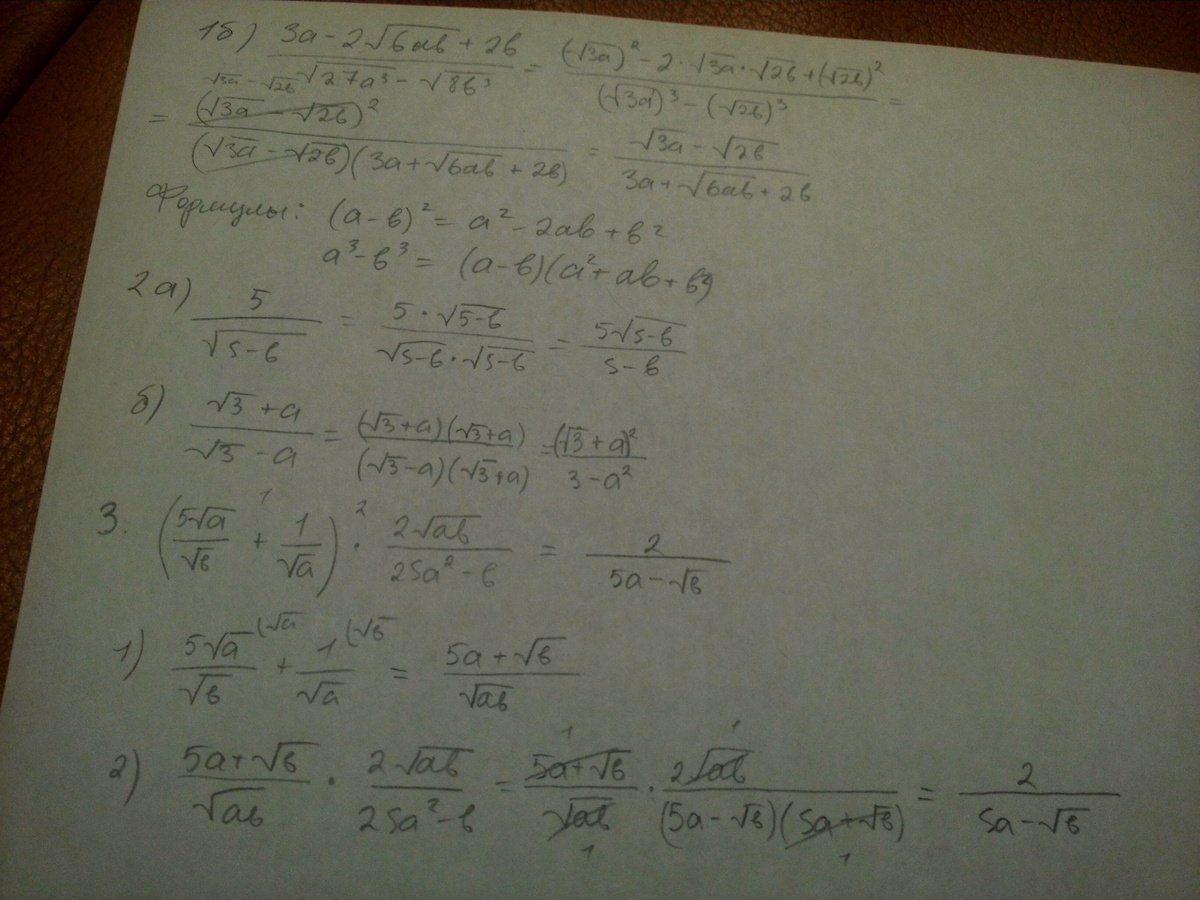 1б) (3a - 2√6ab + 2b)/(√27a³ - √8b³) = ((√3a)² - 2·√3a·√2b + (√2b)²)/((√3a)³ - (√2b)³) =
√3a - √2b
= (√3a - √2b)²/((√3a - √2b)(3a + √6ab + 2b)) = (√3a - √2b)/(3a + √6ab + 2b)
Формулы: (a - b)² = a² - 2ab + b²
a³ - b³ = (a - b)(a² + ab + b²)
2 a) 5/√(5-b) = (5·√(5-b))/(√(5-b)·√(5-b)) = (5√(5-b))/(5-b)
б) (√3 + a)/(√3 - a) = ((√3 + a)(√3 + a))/((√3 - a)(√3 + a)) = (√3 + a)²/(3 - a²)
3. (5√a/√b +¹ 1/√a) ·² 2√ab/(25a² - b) = 2/(5a - √b)
1) 5√a(√a/√b + 1(√b/√a = (5a + √b)/√ab
2) (5a + √b)/√ab · 2√ab/(25a² - b) = (5a + √b)¹/√ab₁ · 2√ab¹/((5a - √b)(5a + √b)₁) = 2/(5a - √b)